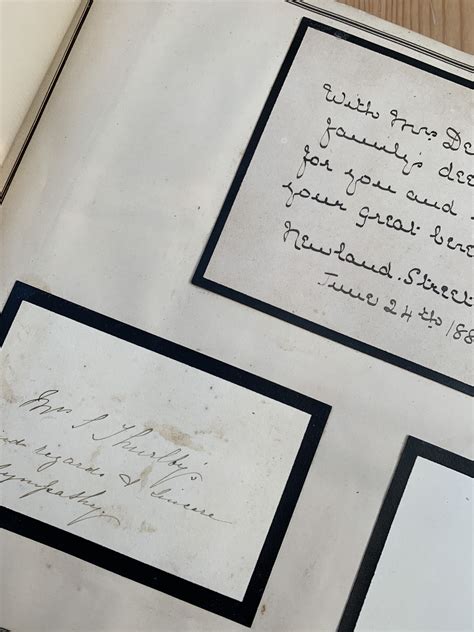 With Mrs De
family's dee
for you and
your great bere
Newland. Street
June 24th /88
Mrs S Thurlby's
kind regards & sincere
sympathy.